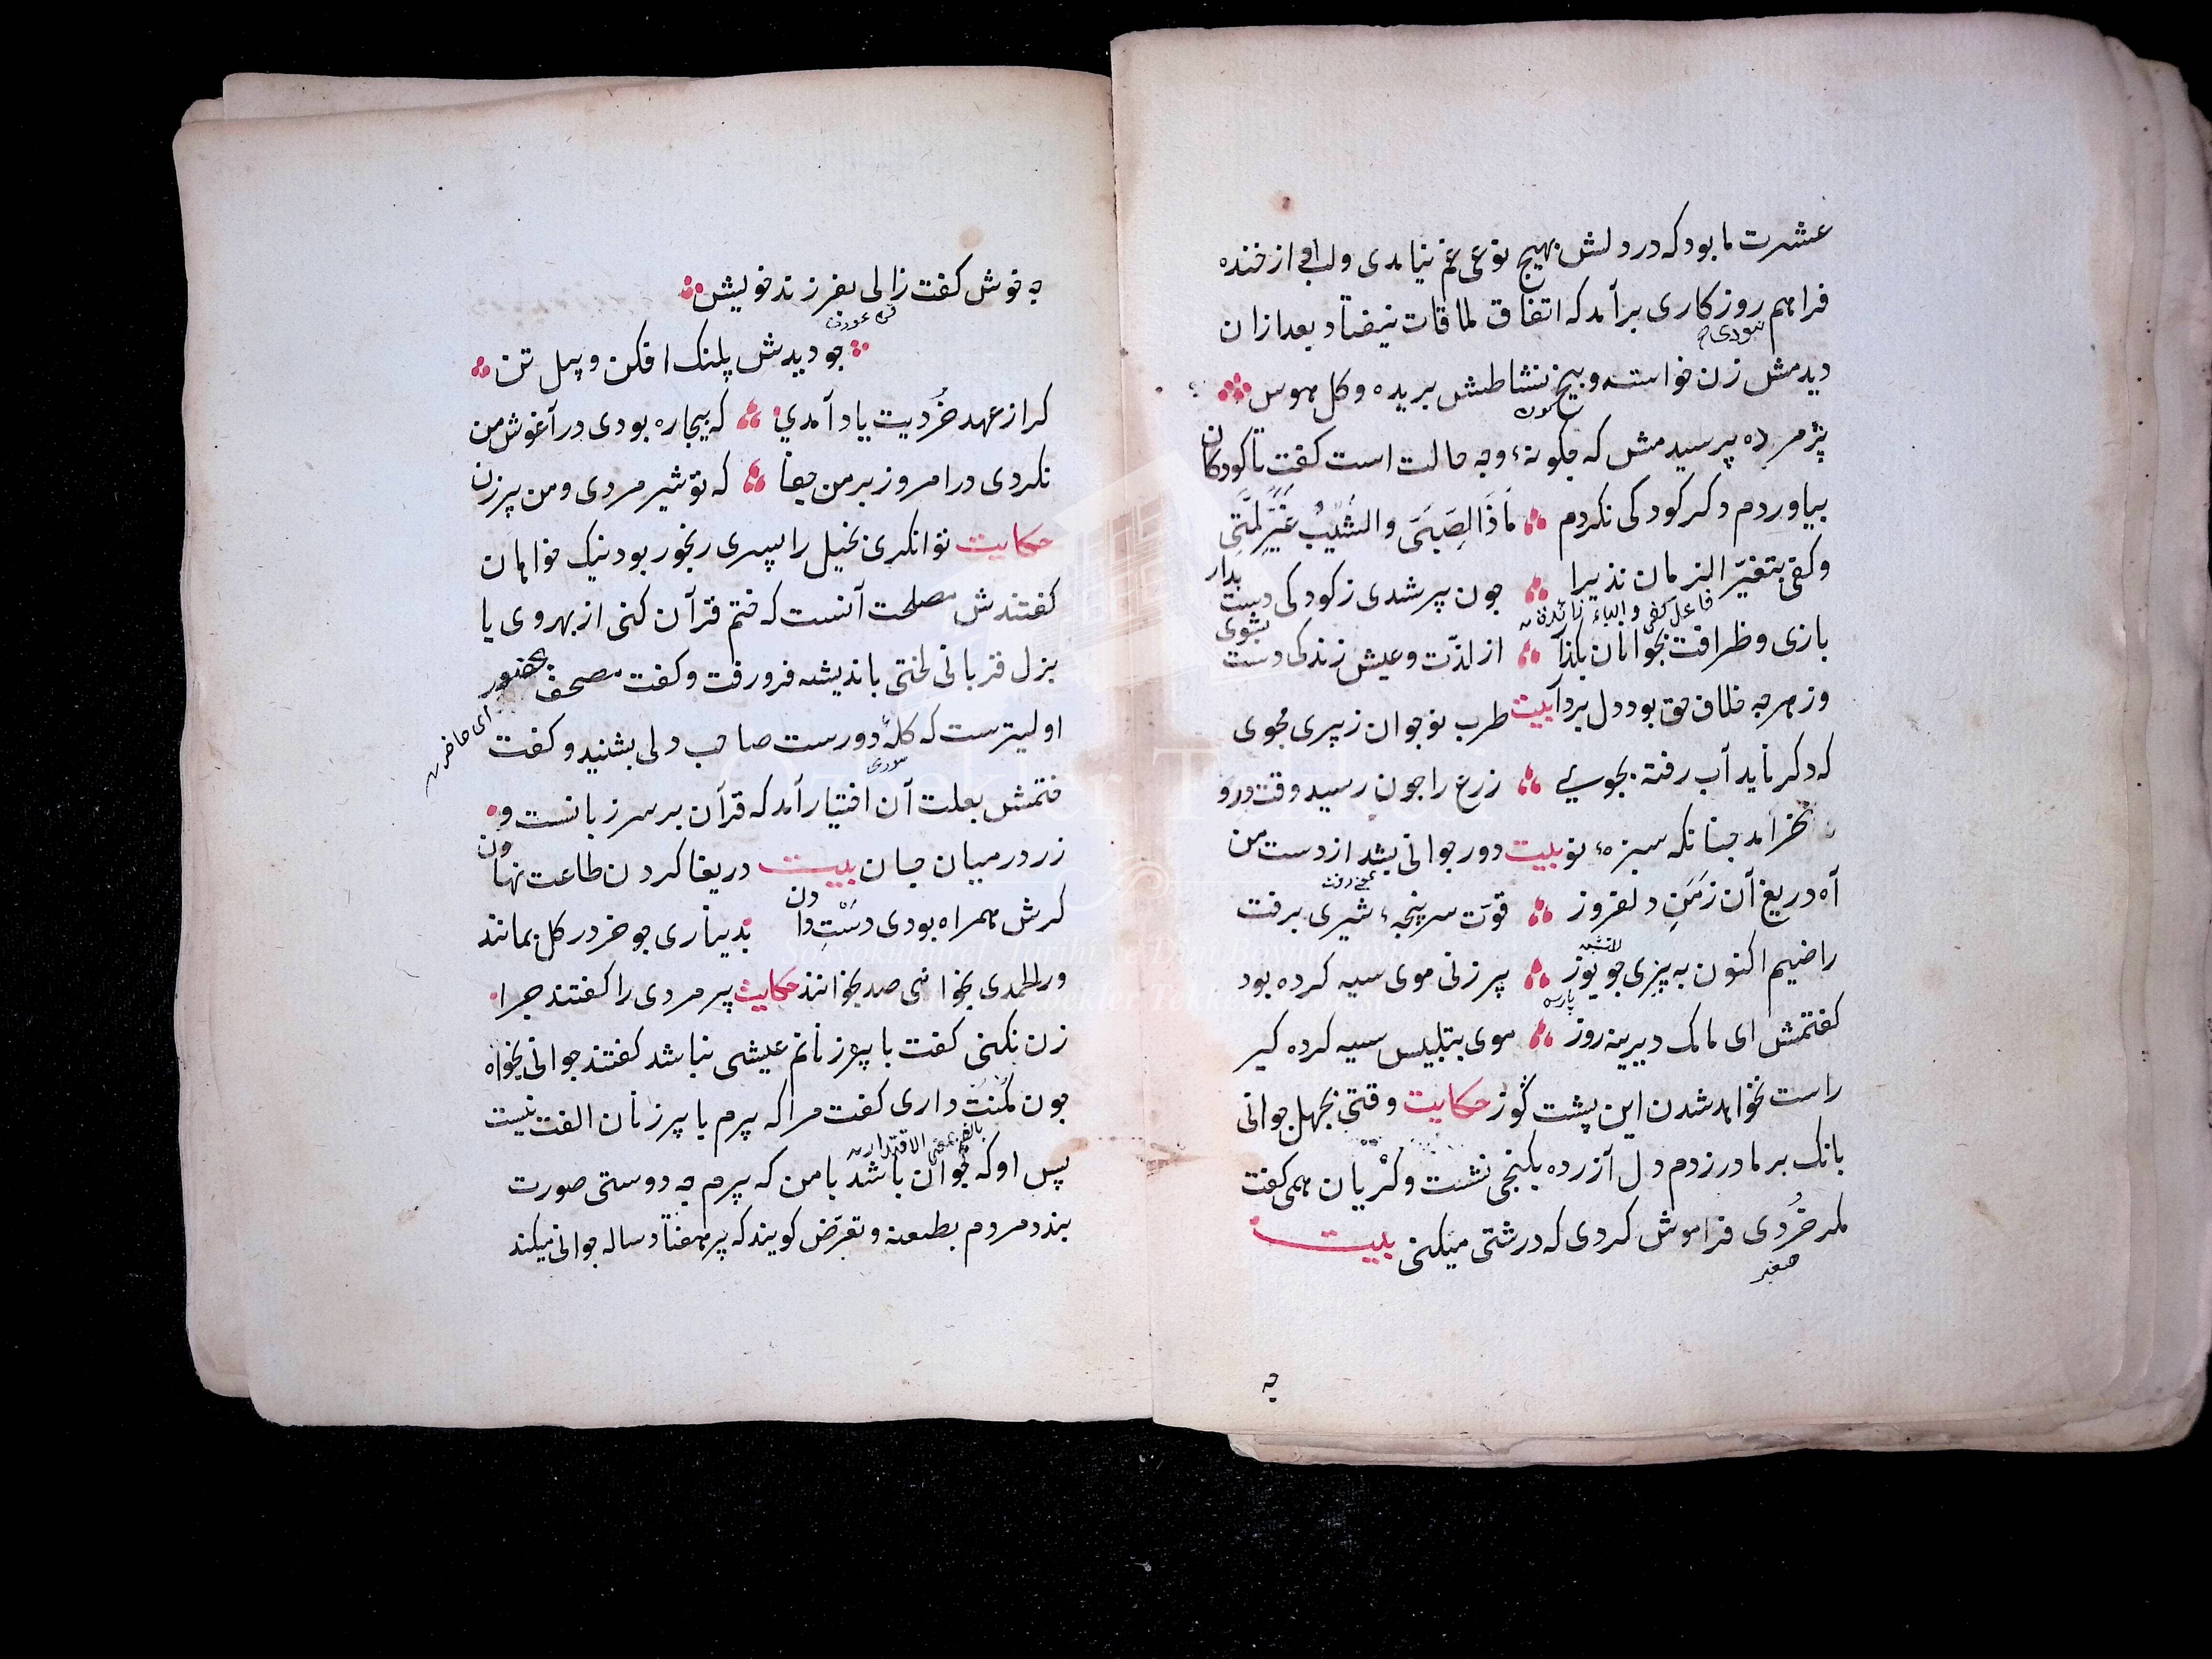 عشرت ما بود که در دلش بهیچ نوعی غم نیامدی و لب از خنده
فراهم روزکاری برآمد که اتفاق ملاقات نیفتاد بعد ازان
دیدمش زن خواسته و بیخ نشاطش بریده و کل هوس
پژمرده پرسیدمش که جکونهٔ و چه حالت است کفت تا کودکان
بیاوردم دکر کودکی نکردم مَاذَا الصِبَىَ والشَّيْبُ غَيَّرَ لِمَّتِى
وکفی بتغیّر الزمان نذیرا جون پیر شدی ز کودکی دست بدار
فاعل کفی و الباء زائدة
بازی و ظرافت بجوانان بکذار از لذّت و عیش زندکی دست بشوی
وز هرچه خلاف حق بود دل بردار بیت طرب نوجوان ز پیری مجوی
که دکر ناید آب رفته بجوی زرع را جون رسید وقت درو
نخرامد جنانکه سبزهٔ نو بیت دور جوانی بشد از دست من
آه دریغ آن زَمَنِ دلفروز قوّت سرپنجهٔ شیری برفت
راضیم اکنون به پنیری جو یوز پیر زنی موی سیه کرده بود
کفتمش ای مامک دیرینه روز موی بتلبیس سیه کرده کیر
راست نخواهد شدن این پشت کوز حکایت وقتی بجهل جوانی
بانک بر مادر زدم دل آزرده بکنجی نشت و کریان همی کفت
مکر خُردی فراموش کردی که درشتی میکنی بیت
صغیر
چه
چه خوش کفت زالی بفرزند خویش
جو دیدش پلنک افکن و پیل تن
کر از عهد خُردیت یاد آمدی که بیجاره بودی در آغوش من
نکردی در امروز بر من جفا که تو شیر مردی و من پیر زن
حکایت توانکری بخیل را پسری رنجور بود نیک خواهان
کفتندش مصلحت آنست که ختم قرآن کنی از بهر وی یا
بزل قربانی لختی باندیشه فرو رفت و کفت مصحف بحضور
ای حاضر
اولیترست که کلهٔ دورست صاحب دلی بشنید و کفت
ختمش بعلت آن اختیار آمد که قرآن بر سر زبانست و
زر در میان جان بیت دریغا کردن طاعت نهادن
کرش همراه بودی دَسْتِ دادن بدیناری جو خر در کل بمانند
ور الحمدی بخوانی صد بخوانند حکایت پیر مردی را کفتند جرا
زن نکنی کفت با پیر زنانم عیشی نباشد کفتند جوانی بخواه
جون مُکْنَت داری کفت مرا که پیرم با پیر زنان الفت نیست
پس او که جوان باشد با من که پیرم چه دوستی صورت
بندد مردم بطعنه و تعرّض کویند که پیر هفتاد ساله جوانی میکند